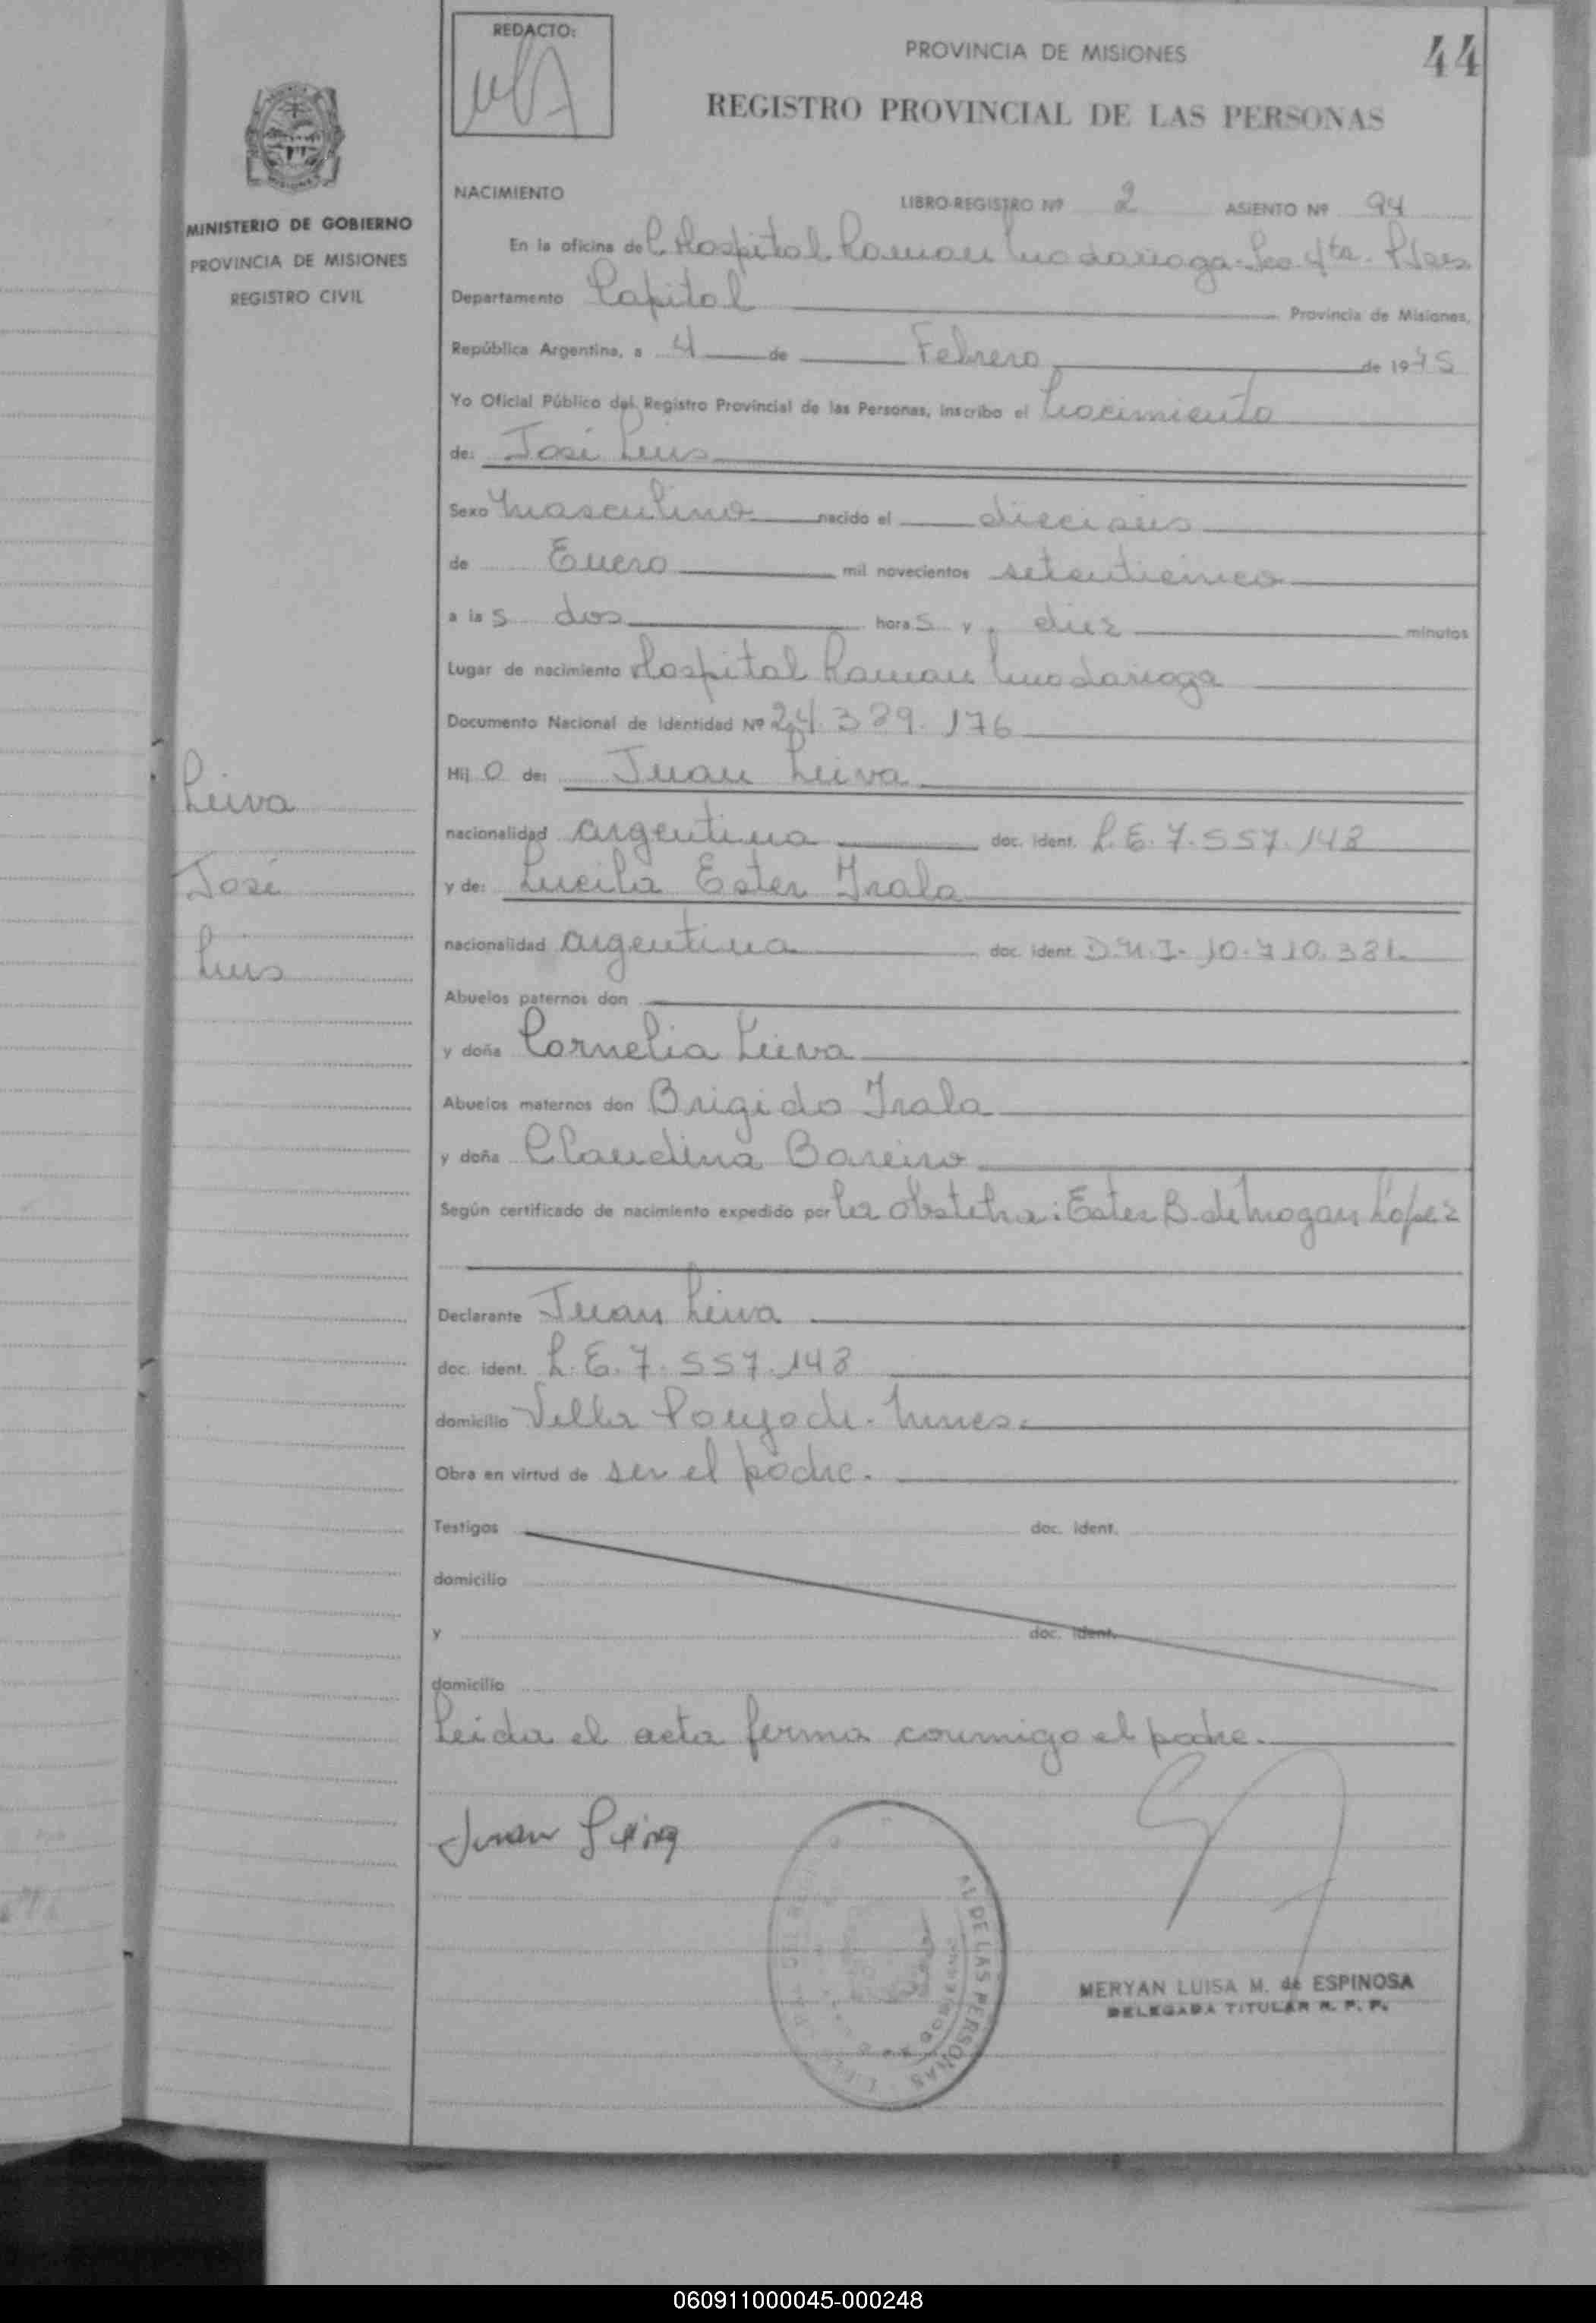 REDACTO:
PROVINCIA DE MISIONES
44
REGISTRO PROVINCIAL DE LAS PERSONAS
MINISTERIO DE GOBIERNO
PROVINCIA DE MISIONES
REGISTRO CIVIL
NACIMIENTO LIBRO-REGISTRO Nº 2 ASIENTO Nº 94
En la oficina del Hospital Ramon Madariaga - Sec. 4ta. Pdas
Departamento Capital Provincia de Misiones,
República Argentina, a 4 de Febrero de 1975
Yo Oficial Público del Registro Provincial de las Personas, inscribo el Nacimiento
de: José Luis
Sexo Masculino nacido el dieciseis
de Enero mil novecientos setenticinco
a las dos horas y diez minutos
Lugar de nacimiento Hospital Ramon Madariaga
Documento Nacional de Identidad Nº 24.389.176
Leiva
José
Luis
Hijo de: Juan Leiva
nacionalidad argentina doc. ident. L.E. 7.557.148
y de: Lucila Ester Irala
nacionalidad argentina doc. ident. D.N.I- 10.710.381.
Abuelos paternos don
y doña Cornelia Leiva
Abuelos maternos don Brigido Irala
y doña Claudina Bareiro
Según certificado de nacimiento expedido por la obstetra: Ester B. de Mogan López
Declarante Juan Leiva
doc. ident. L.E. 7.557.148
domicilio Villa Poujade. Mnes.
Obra en virtud de ser el padre.
Testigos doc. ident.
domicilio
y doc. ident.
domicilio
Leida el acta firma conmigo el padre.
Juan Leiva
AL DE LAS PERSONAS
MERYAN LUISA M. de ESPINOSA
DELEGADA TITULAR R. P. P.
060911000045-000248